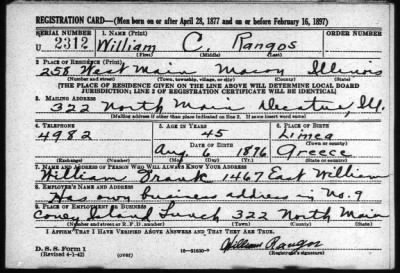 REGISTRATION CARD—(Men born on or after April 28, 1877 and on or before February 16, 1897)
SERIAL NUMBER 1. NAME (Print) ORDER NUMBER
U 2312 William C. Rangos
(First) (Middle) (Last)
2. PLACE OF RESIDENCE (Print)
258 West Main Macon Illinois
(Number and street) (Town, township, village, or city) (County) (State)
[THE PLACE OF RESIDENCE GIVEN ON THE LINE ABOVE WILL DETERMINE LOCAL BOARD
JURISDICTION; LINE 2 OF REGISTRATION CERTIFICATE WILL BE IDENTICAL]
3. MAILING ADDRESS
322 North Main Decatur, Ill.
[Mailing address if other than place indicated on line 2. If same insert word same]
4. TELEPHONE 5. AGE IN YEARS 6. PLACE OF BIRTH
4982 45
DATE OF BIRTH (Town or county)
Aug. 6 1896 Greece
(Exchange) (Number) (Mo.) (Day) (Yr.) (State or country)
7. NAME AND ADDRESS OF PERSON WHO WILL ALWAYS KNOW YOUR ADDRESS
William Frank 1467 East William
8. EMPLOYER'S NAME AND ADDRESS
Has own business address in No. 9
9. PLACE OF EMPLOYMENT OR BUSINESS
Coney Island Lunch 322 North Main
(Number and street or R. F. D. number) (Town) (County) (State)
I AFFIRM THAT I HAVE VERIFIED ABOVE ANSWERS AND THAT THEY ARE TRUE.
D. S. S. Form 1 William Rangos
(Revised 4-1-42) (over) (Registrant's signature)